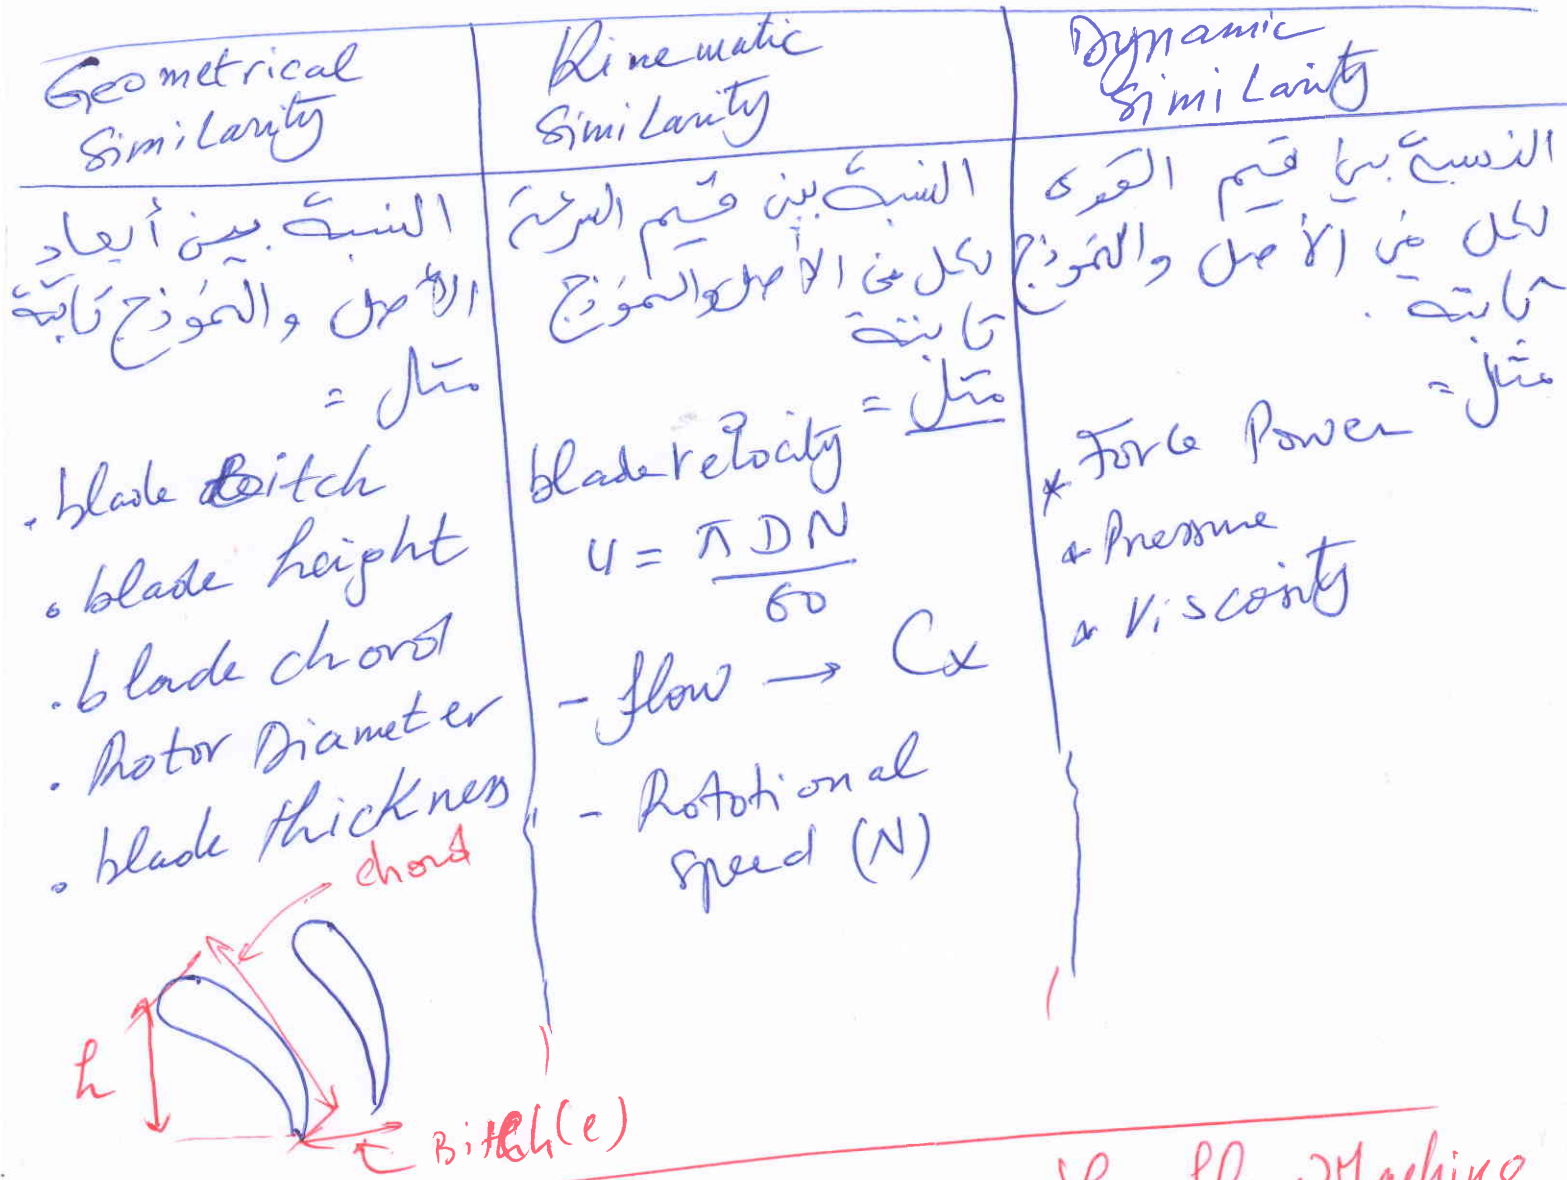 Geometrical
Similarity
النسبة بين أبعاد
الأصل والنموذج ثابتة
مثال =
. blade Bitch
. blade height
. blade chord
. Rotor Diameter
. blade thickness
chord
h
Bitch (e)
Kinematic
Similarity
النسبة بين قيم السرعة
لكل من الأصل والنموذج
ثابتة
مثال =
blade velocity
u = π D N
60
- flow → Cx
- Rototional
speed (N)
Dynamic
Similarity
النسبة بين قيم القوى
لكل من الأصل والنموذج
ثابتة .
مثال =
* Force Power
* Pressure
* Viscosity
Machine